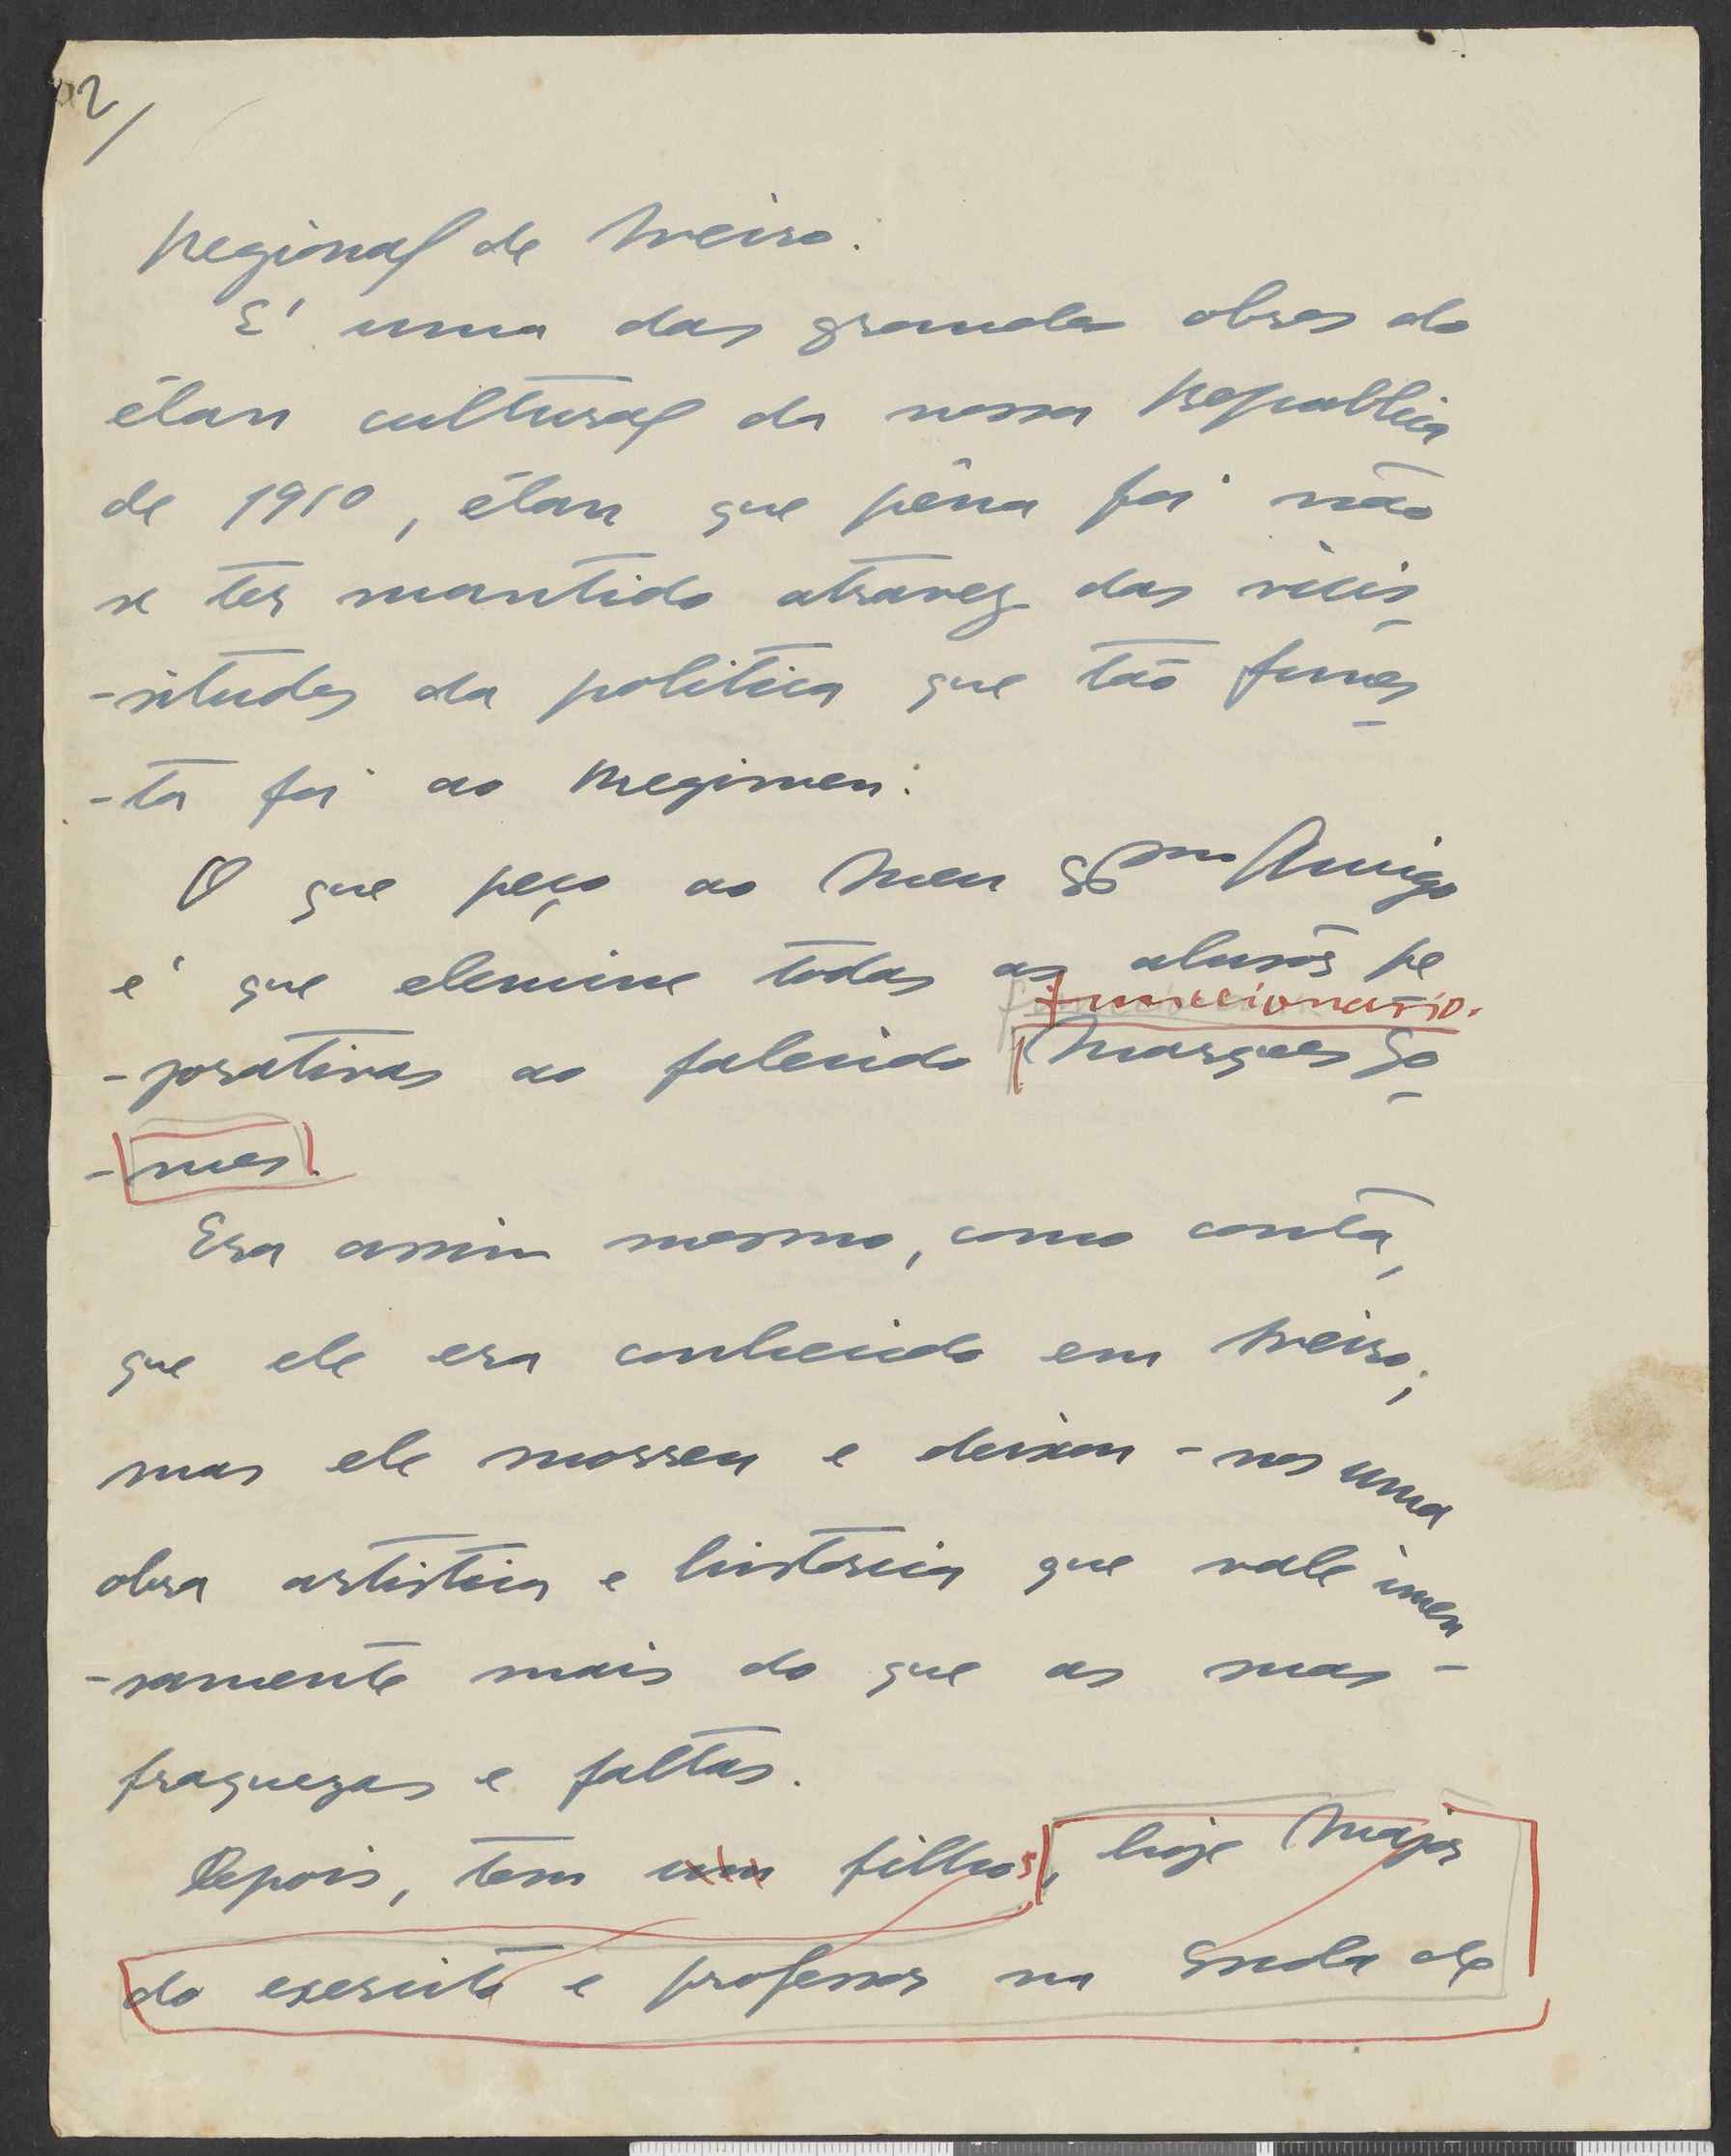 2/
Regional de Aveiro.
E' uma das grandes obras do
élan cultural da nossa Republica
de 1910, élan que pêna foi não
se ter mantido atravez das vicis
-situdes da politica que tão funes
-ta foi ao Regimen.
O que peço ao Meu Bom Amigo
é que elemine todas as alusões pe
funccionario.
-jorativas ao falecido Marques Go
-mes.
Era assim mesmo, como conta,
que ele era conhecido em Aveiro;
mas ele morreu e deixou-nos uma
obra artistica e historica que vale imen
-samente mais do que as suas
fraquezas e faltas.
Depois, tem um filhos, hoje Major
do exercito e professor na Escola de